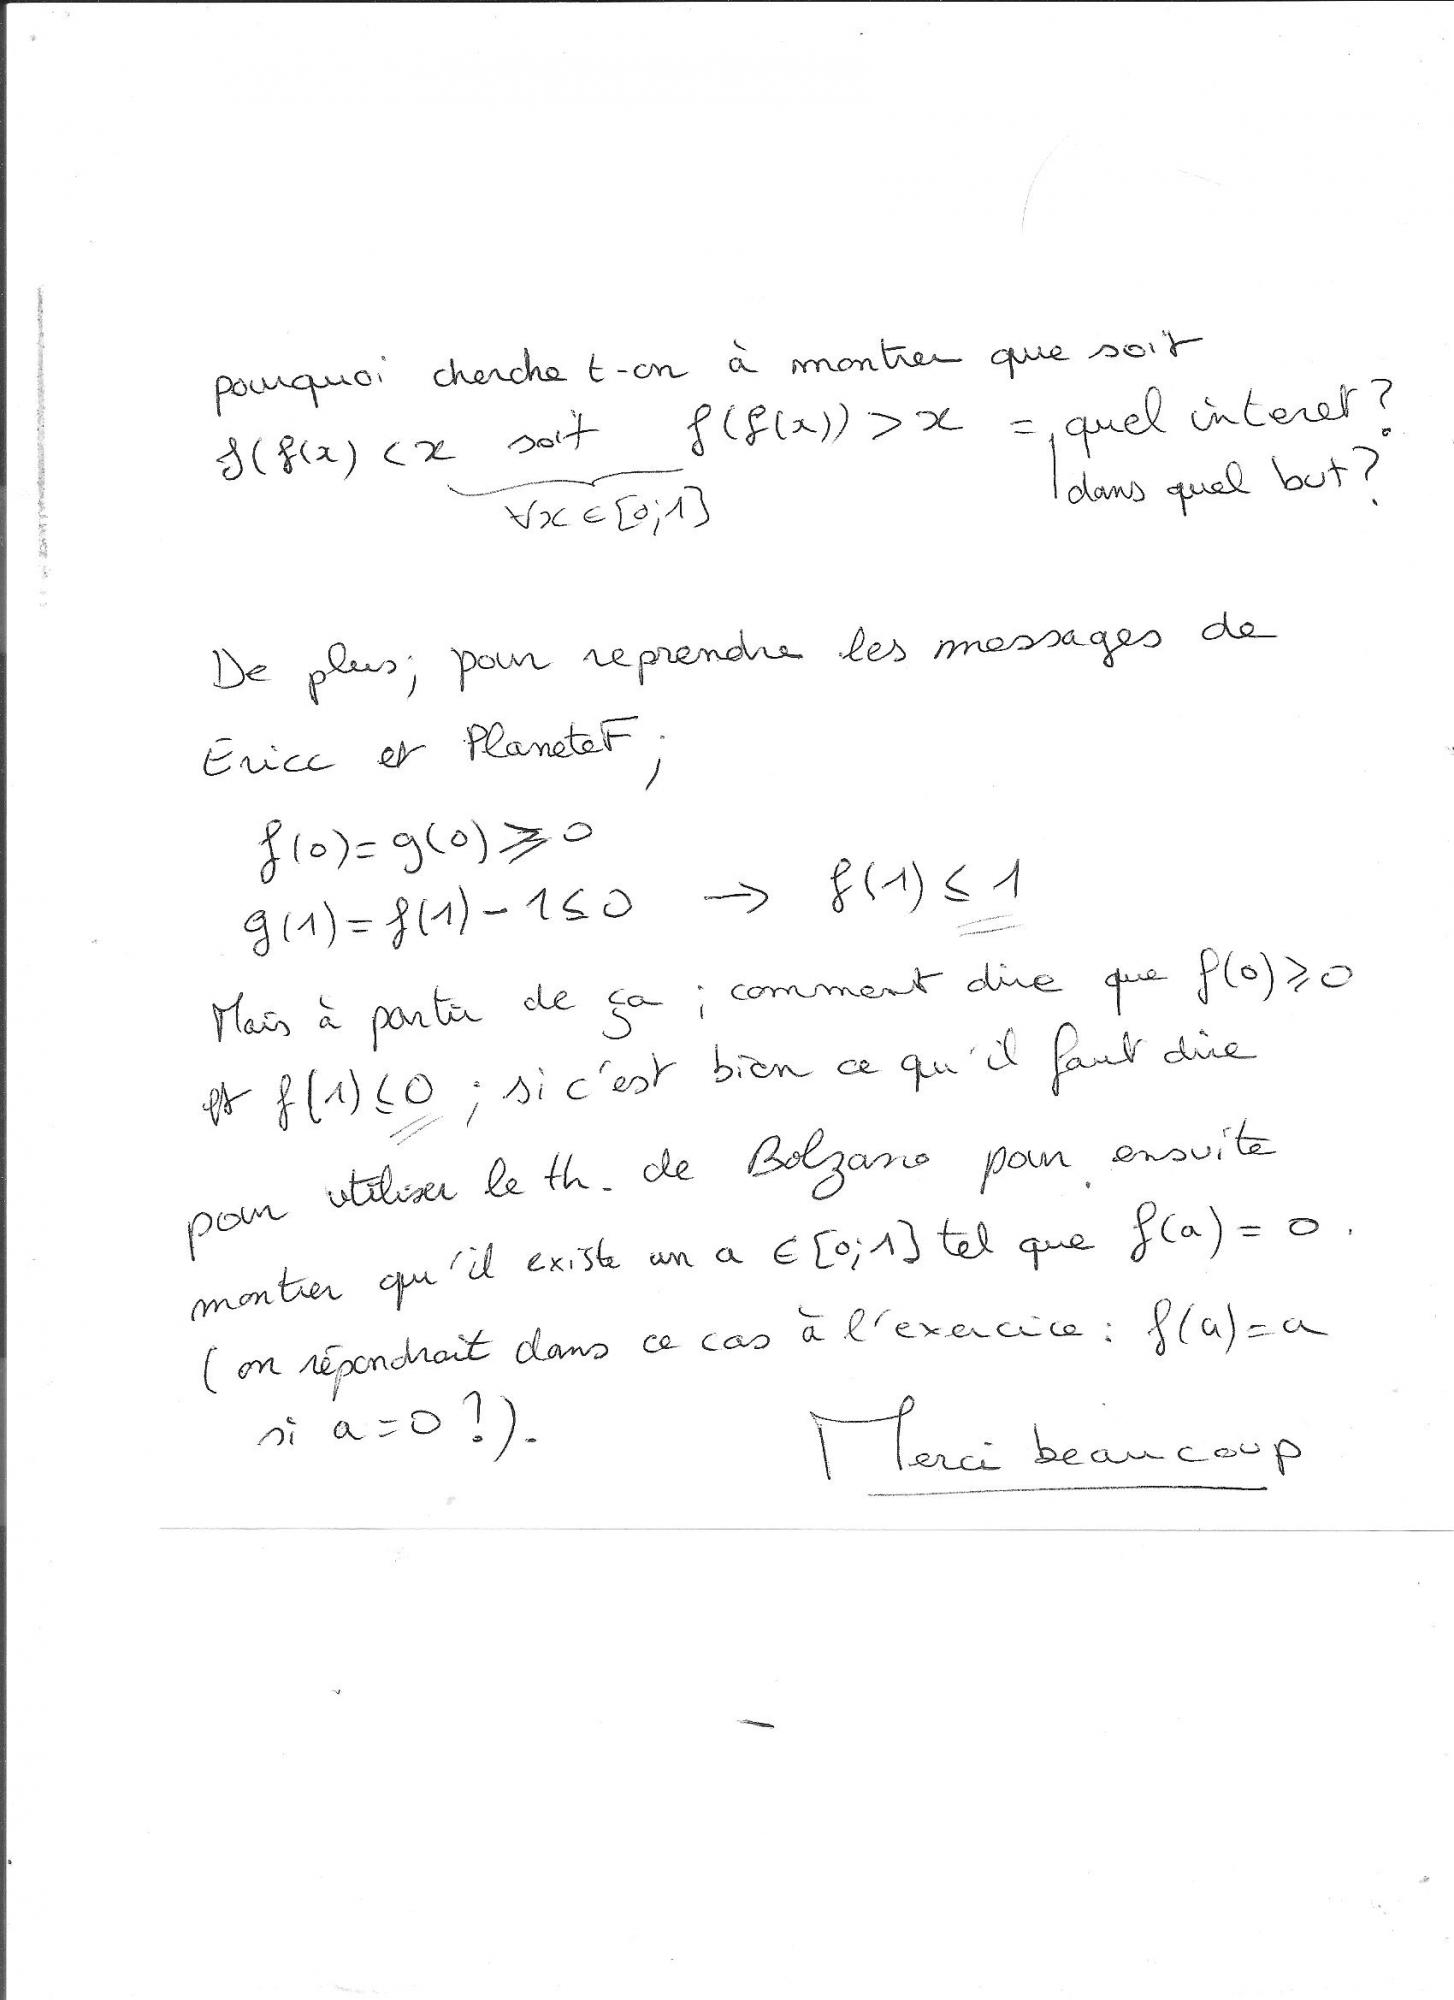 pourquoi cherche t-on à montrer que soit
f(f(x) < x soit f(f(x)) > x = quel interet?
dans quel but?
∀x ∈ [0;1]
De plus; pour reprendre les messages de
Ericc et PlaneteF;
f(0) = g(0) ⩾ 0
g(1) = f(1) - 1 ≤ 0 → f(1) ≤ 1
Mais à partir de ça ; comment dire que f(0) ⩾ 0
et f(1) ≤ 0 ; si c'est bien ce qu'il faut dire
pour utiliser le th. de Bolzano pour ensuite
montrer qu'il existe un a ∈ [0;1] tel que f(a) = 0.
(on répondrait dans ce cas à l'exercice : f(a) = a
si a = 0 ?).
Merci beaucoup